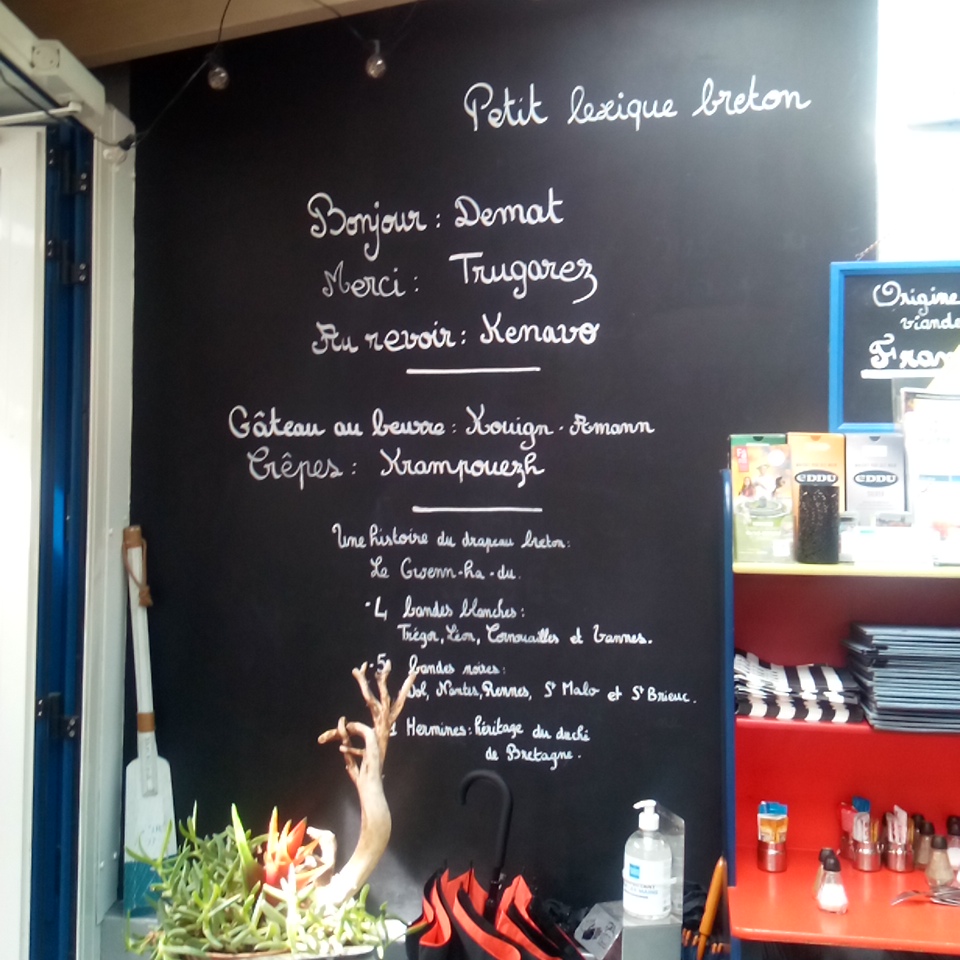 Petit lexique breton
Bonjour : Demat
Merci : Trugarez
Au revoir : Kenavo
Gâteau au beurre : Kouign-Amann
Crêpes : Krampouezh
Une histoire du drapeau breton :
Le Gwenn-ha-du.
4 bandes blanches :
Trégor, Léon, Cornouailles et Vannes.
5 bandes noires :
Dol, Nantes, Rennes, St Malo et St Brieuc.
Hermines : héritage du duché
de Bretagne.
Origine
viande
EDDU
EDDU